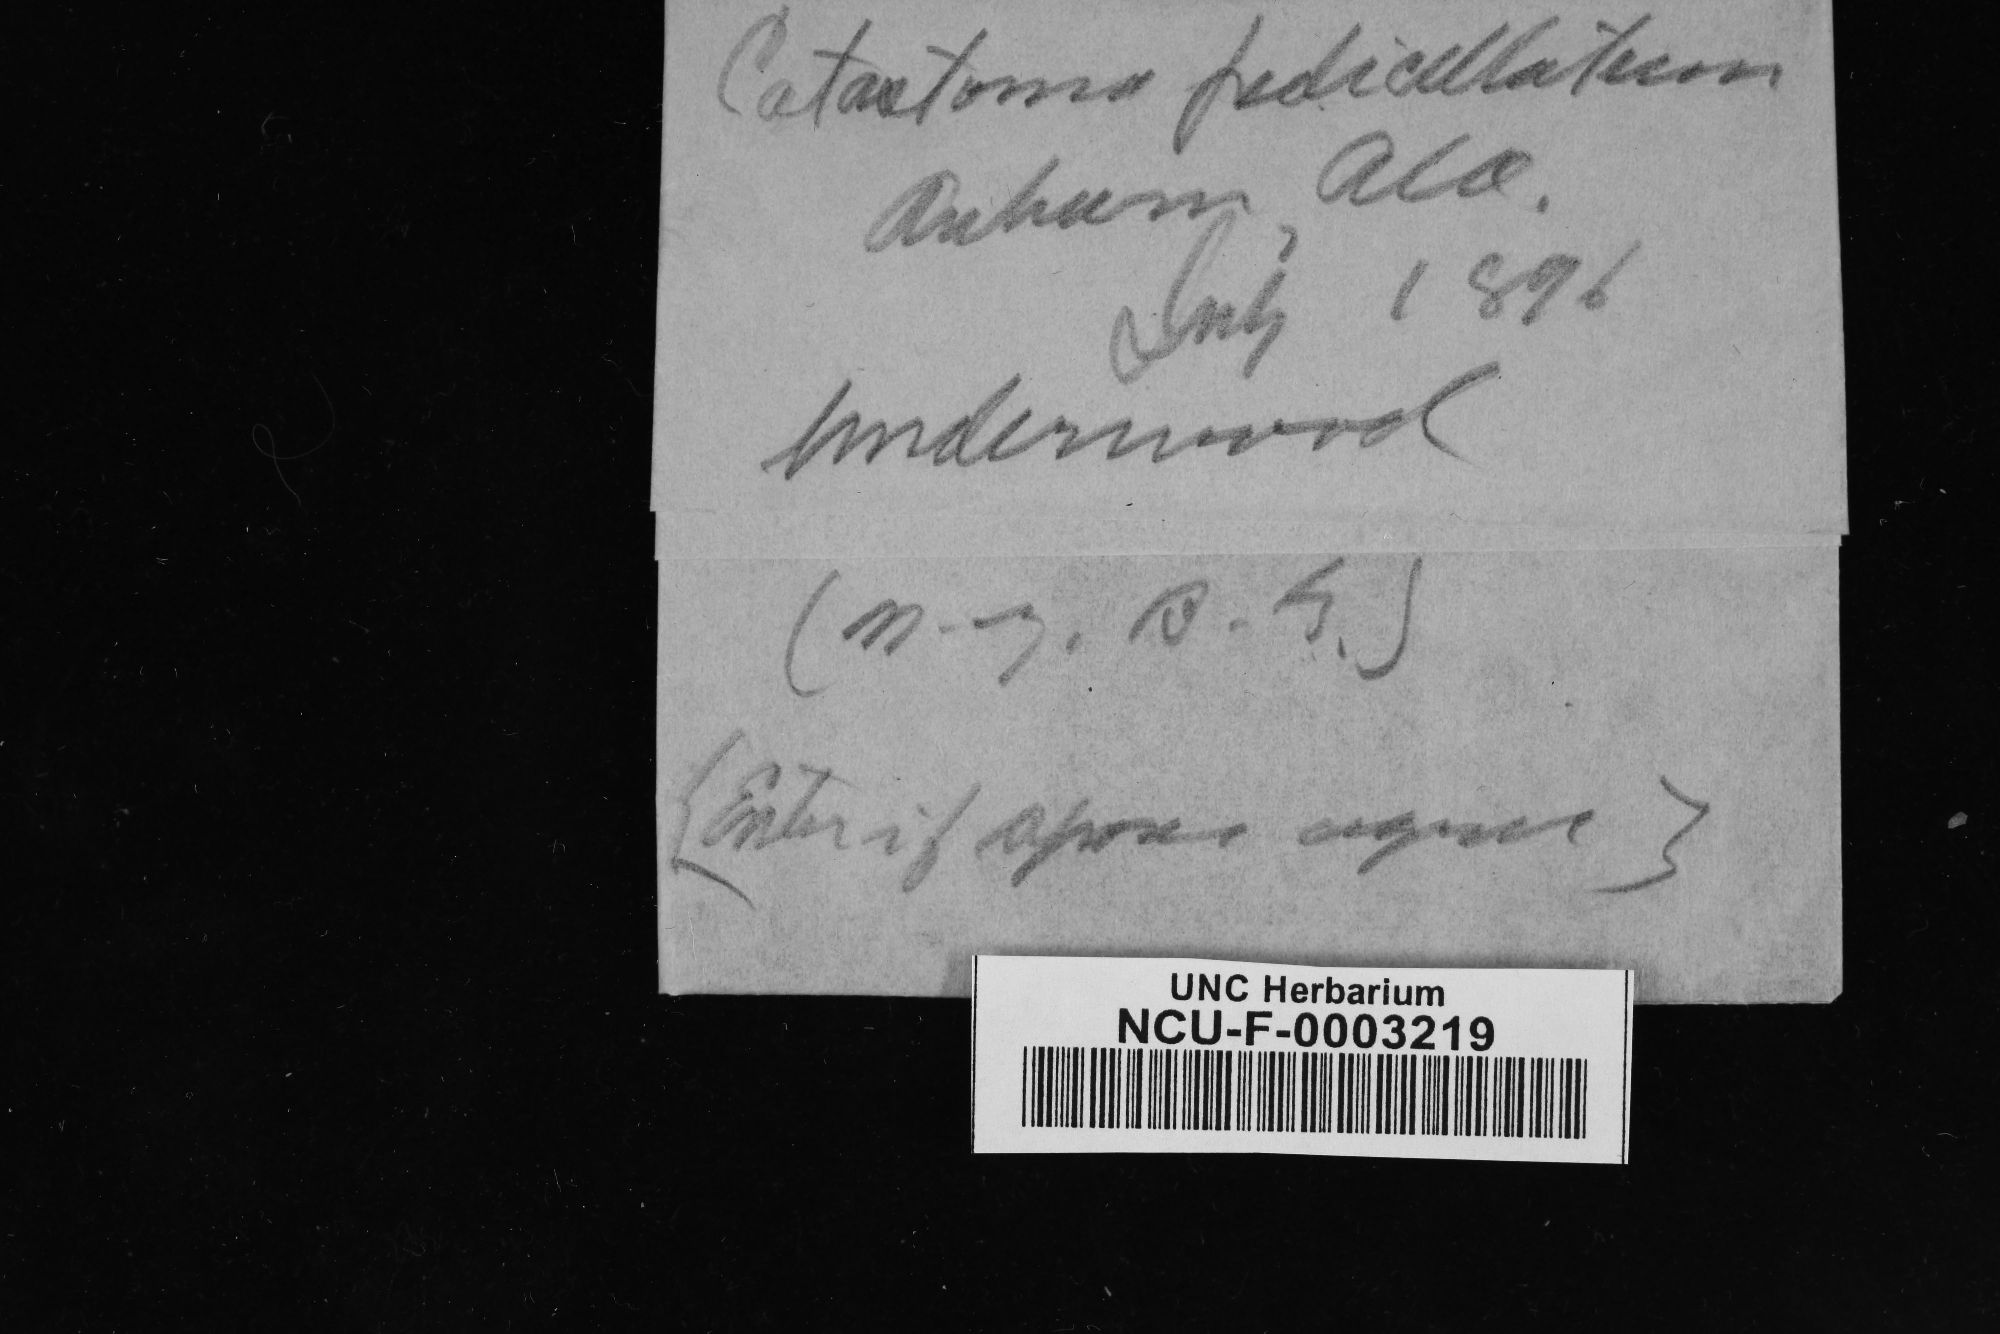 Catastoma pedicellatum
Auburn, Ala.
July 1896
Underwood
(N.Y. B. G.)
{Enter if spores agree}
UNC Herbarium
NCU-F-0003219